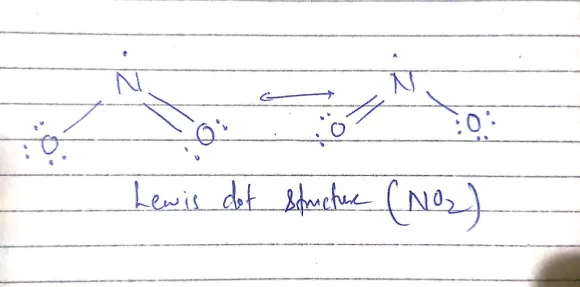 N N
O O O O
Lewis dot structure (NO2)